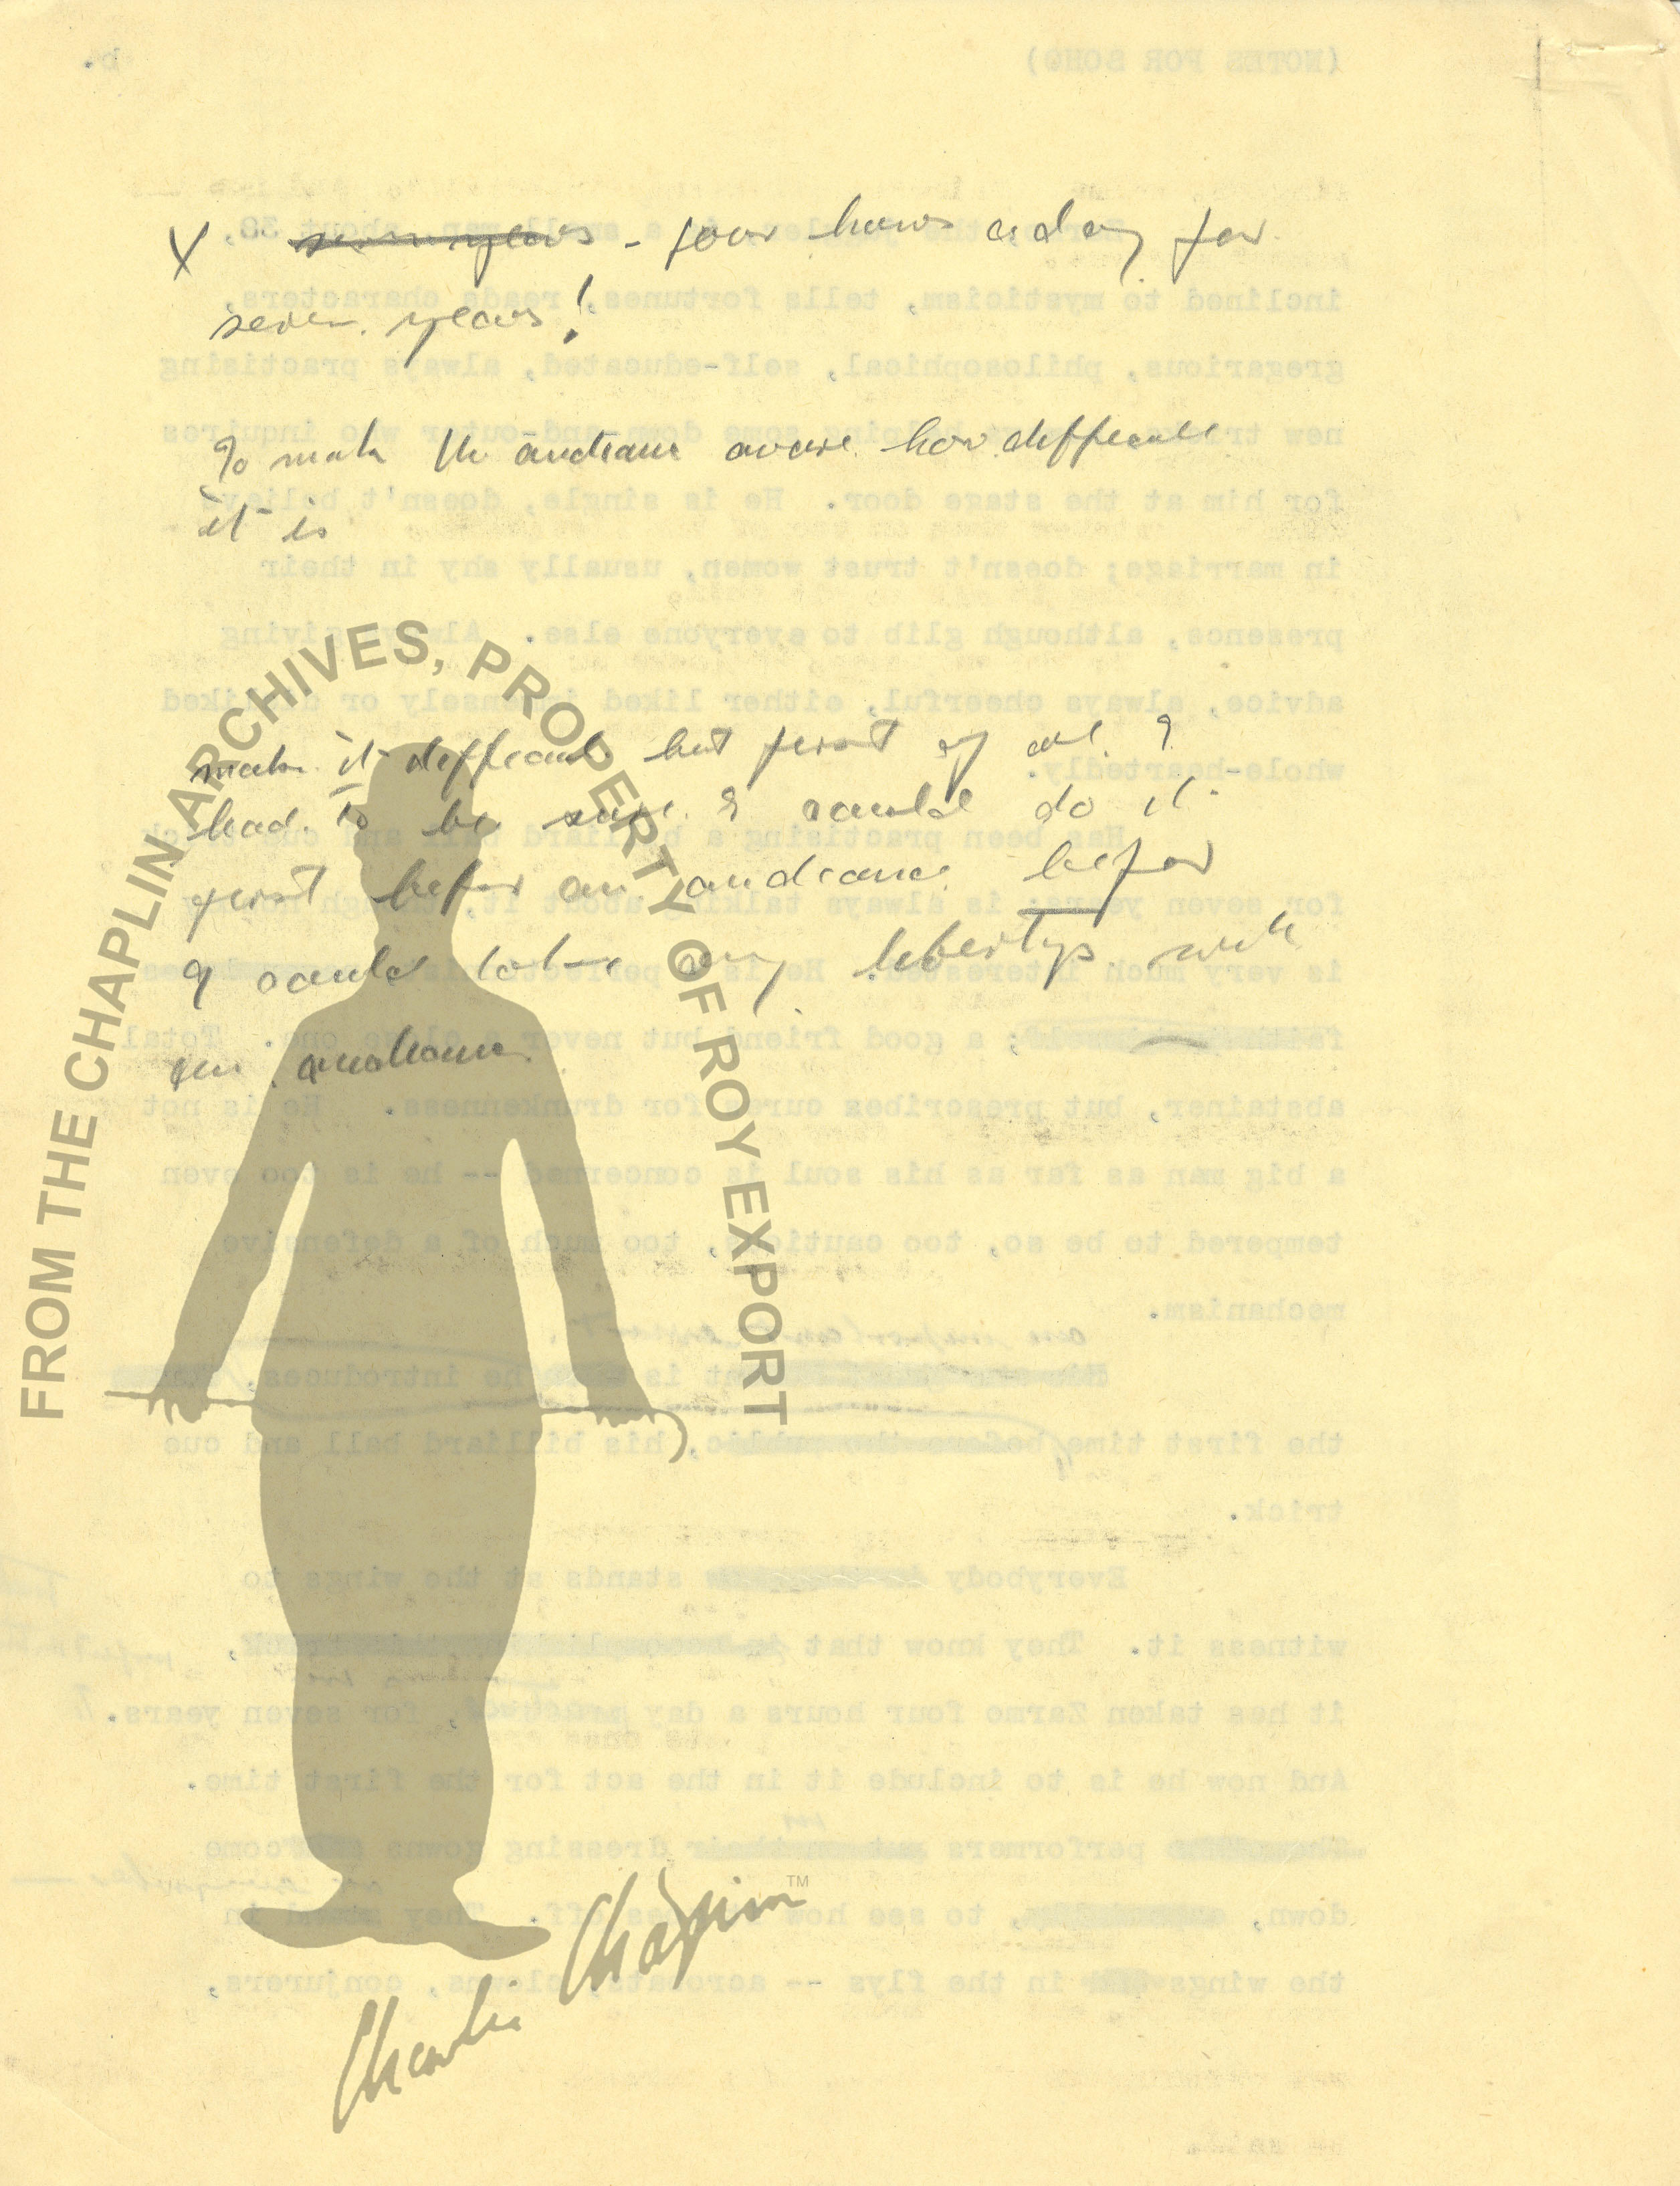 X ~~seven years~~ - four hours a day for
seven years!
To make the audiance aware how difficult
it is
make it difficult but first of all I
had to be sure I could do it
first before an audiance before
I could take any libertys with
an audiance.
FROM THE CHAPLIN ARCHIVES, PROPERTY OF ROY EXPORT
Charlie Chaplin ™
(NOTES FOR SOHO)
6.
about 38,
inclined to mysticism, tells fortunes, reads characters,
gregarious, philosophical, self-educated, always practising
new some down-and-outer who inquires
for him at the stage door. He is single, doesn't believe
in marriage; doesn't trust women, usually shy in their
presence, although glib to everyone else. Always giving
advice, always cheerful, either liked immensely or disliked
whole-heartedly.
Has been practising a billiard ball and cue trick
for seven years; is always talking about it, though nobody
is very much interested. He is a perfectionist
a good friend but never a close one. Total
abstainer, but prescribes cures for drunkenness. He is not
a big man as far as his soul is concerned -- he is too even
tempered to be so, too cautious, too much of a defensive
mechanism.
an important
is he introduces,
the first time before the public, his billiard ball and cue
trick.
Everybody stands at the wings to
witness it. They know that
it has taken Zarmo four hours a day for seven years.
And now he is to include it in the act for the first time.
performers dressing gowns come
down, to see how it goes off. They stand in
the wings and in the flys -- acrobats, clowns, conjurers,